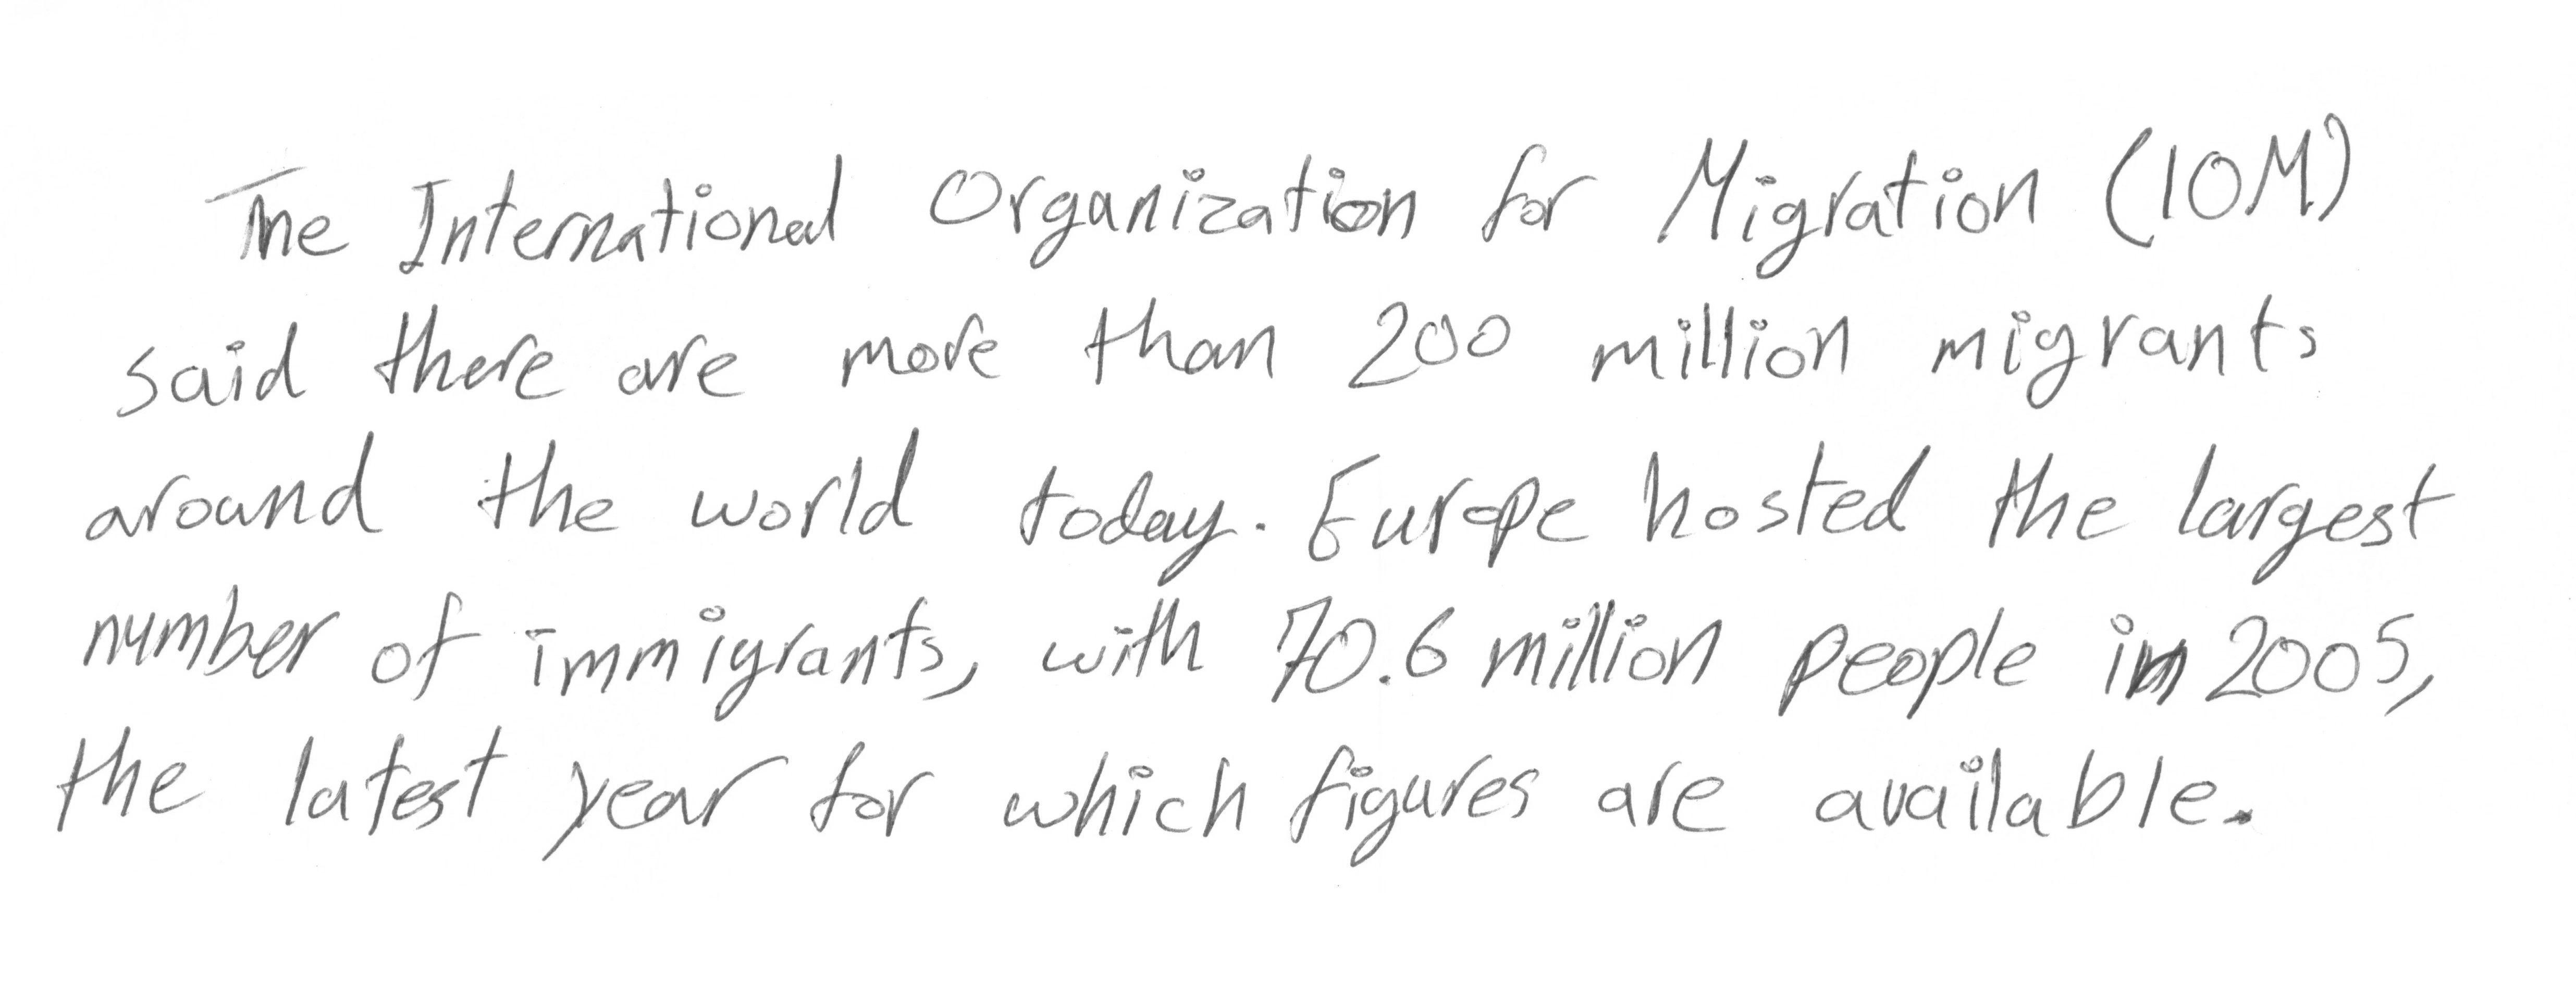 The International Organization for Migration (IOM)
said there are more than 200 million migrants
around the world today. Europe hosted the largest
number of immigrants, with 70.6 million people in 2005,
the latest year for which figures are available.